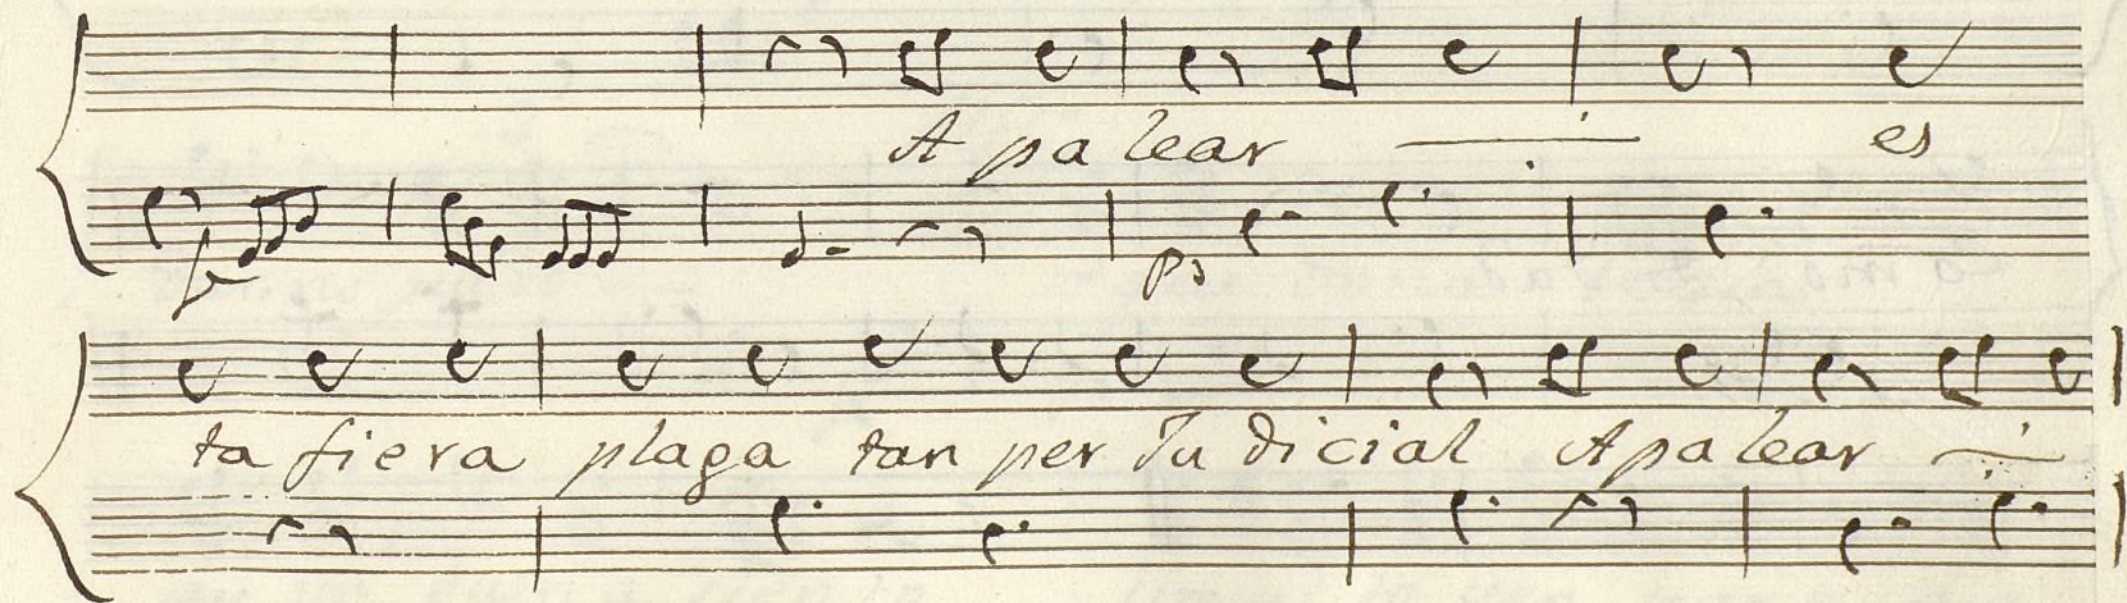 A pa lear es
fe
Po
ta fiera plaga tan per Ju dicial Apalear